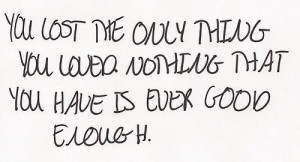 YOU LOST THE ONLY THING
YOU LOVED. NOTHING THAT
YOU HAVE IS EVER GOOD
ENOUGH.